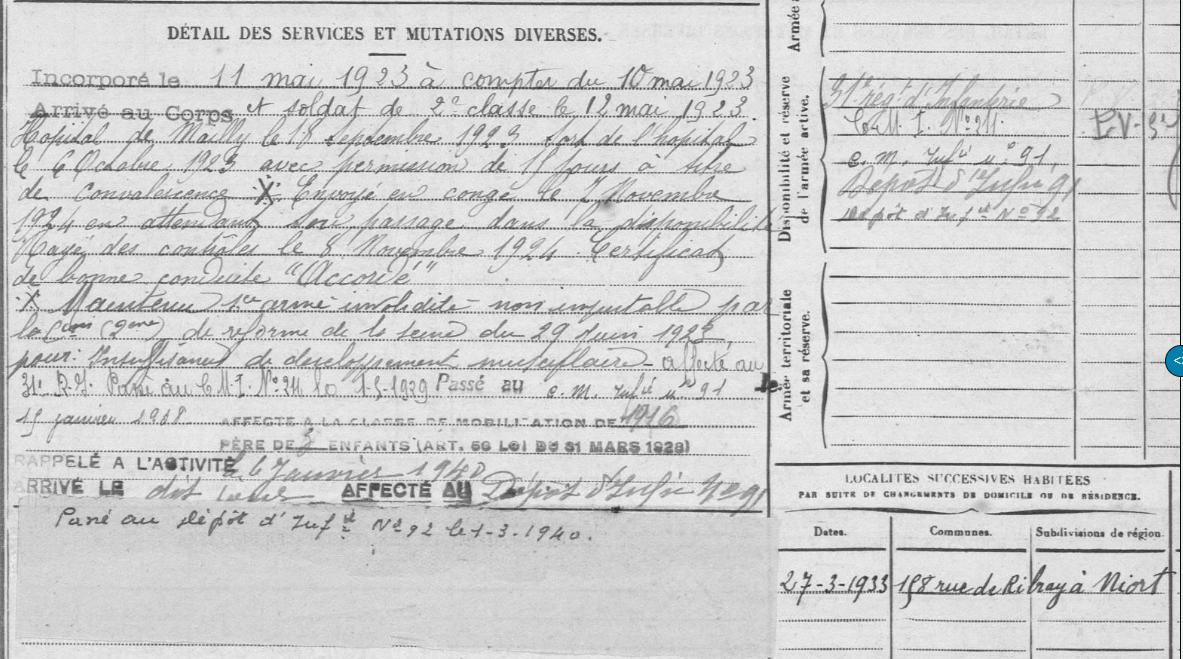 DÉTAIL DES SERVICES ET MUTATIONS DIVERSES.
Incorporé le 11 mai 1923 à compter du 10 mai 1923
Arrivé au Corps et soldat de 2e classe le 12 mai 1923.
Hopital de Mailly le 18 septembre 1923 sort de l'hopital
le 6 Octobre 1923 avec permission de 15 jours à titre
de convalescence X. Envoyé en congé le 7 Novembre
1924 en attendant son passage dans la disponibilité
Rayé des controles le 8 Novembre 1924 Certificat
de bonne conduite "Accordé"
X Maintenu armé invalidité non imputable par
la Cion (2eme) de reforme de la seine du 29 Juin 1923,
pour: Insuffisance de developpement musculaire - affecté au
31e R.I. Passé au C.M.I. No 24 le 1-5-1929 Passé au c.m. Infie no 91 le
15 janvier
AFFECTÉ A LA CLASSE DE MOBILISATION DE 1916
PÈRE DE 3 ENFANTS (ART. 58 LOI DU 31 MARS 1928)
RAPPELÉ A L'ACTIVITÉ le Janvier 1940
ARRIVÉ LE dit jour AFFECTÉ AU Dépôt d'Infie No 91
Passé au dépôt d'Infie No 92 le 1-3-1940.
Armée
Disponibilité et réserve
de l'armée active.
31e rég. d'Infanterie
C.M.I. No 24.
c.m. Infie no 91
Dépôt d'Infie 91
Dépôt d'Infie No 92
Armée territoriale
et sa réserve.
LOCALITÉS SUCCESSIVES HABITÉES
PAR SUITE DE CHANGEMENTS DE DOMICILE OU DE RÉSIDENCE.
Dates. Communes. Subdivisions de région.
27-3-1933 158 rue de Ribray à Niort